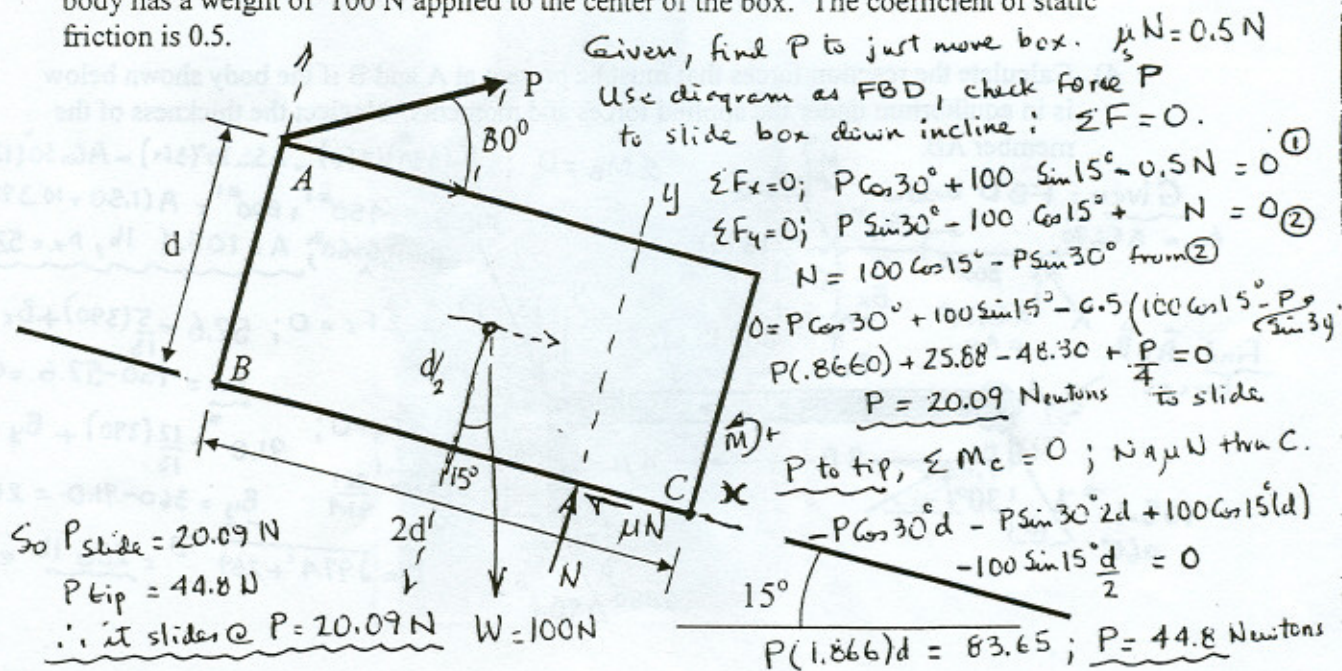 body has a weight of 100 N applied to the center of the box. The coefficient of static
friction is 0.5.
Given, find P to just move box. μsN = 0.5 N
Use diagram as FBD, check force P
to slide box down incline: ΣF = 0.
ΣFx=0; P Cos 30° + 100 Sin 15° - 0.5 N = 0 ①
ΣFy=0; P Sin 30° - 100 Cos 15° + N = 0 ②
N = 100 Cos 15° - P Sin 30° from ②
0 = P Cos 30° + 100 Sin 15° - 0.5 (100 Cos 15° - P Sin 30)
P(.8660) + 25.88 - 48.30 + P/4 = 0
P = 20.09 Newtons to slide
M)+
P to tip, ΣMc = 0; N & μN thru C.
-P Cos 30° d - P Sin 30° 2d + 100 Cos 15° (d)
-100 Sin 15° d/2 = 0
P(1.866)d = 83.65; P = 44.8 Newtons
P
30°
A
d
y
B
d/2
15°
C
x
2d
μN
N
W = 100N
15°
So P slide = 20.09 N
P tip = 44.8 N
∴ it slides @ P = 20.09 N